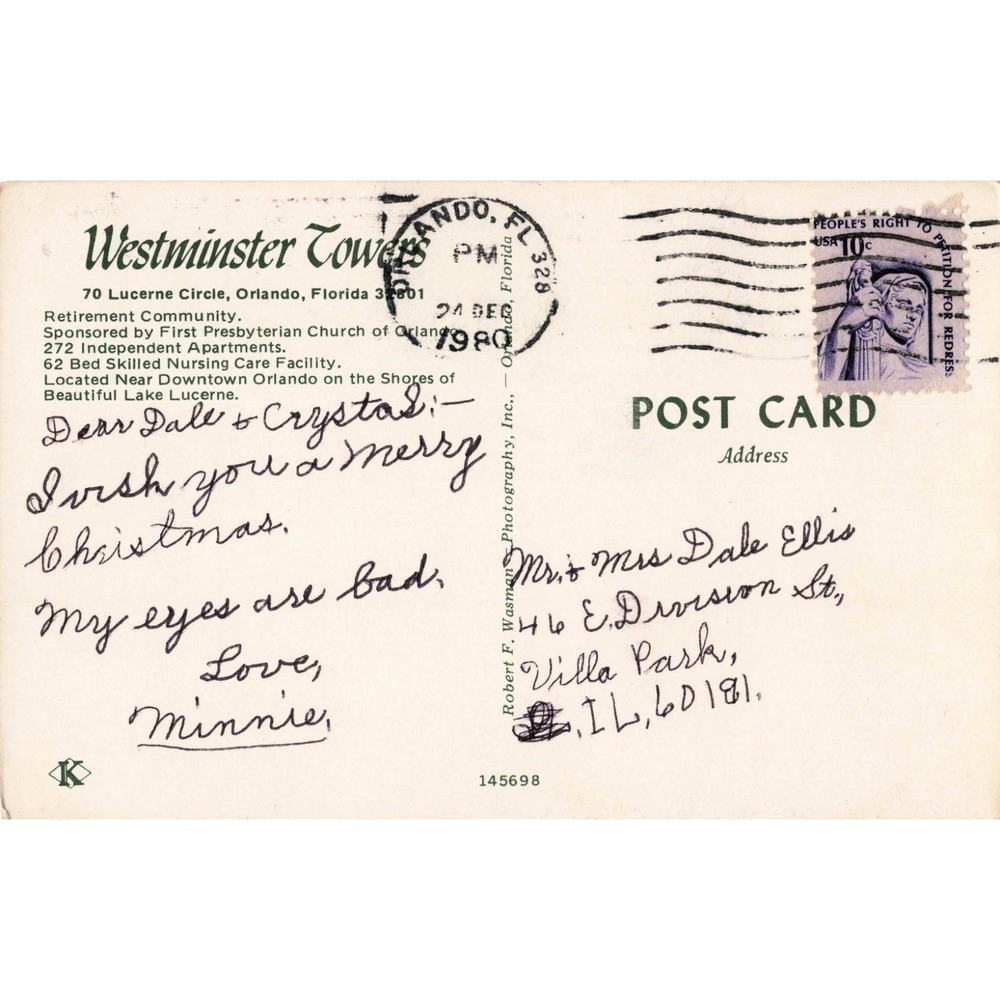 Westminster Towers
70 Lucerne Circle, Orlando, Florida 32801
Retirement Community.
Sponsored by First Presbyterian Church of Orlando.
272 Independent Apartments.
62 Bed Skilled Nursing Care Facility.
Located Near Downtown Orlando on the Shores of
Beautiful Lake Lucerne.
Dear Dale & Crystal:—
I wish you a Merry
Christmas.
My eyes are bad.
Love,
Minnie.
K
ORLANDO, FL 328
PM
24 DEC
1980
Robert F. Wasman – Photography, Inc., — Orlando, Florida
145698
PEOPLE'S RIGHT TO PETITION FOR REDRESS
USA 10c
POST CARD
Address
Mr. & Mrs Dale Ellis
46 E. Division St.,
Villa Park,
IL, 60181.